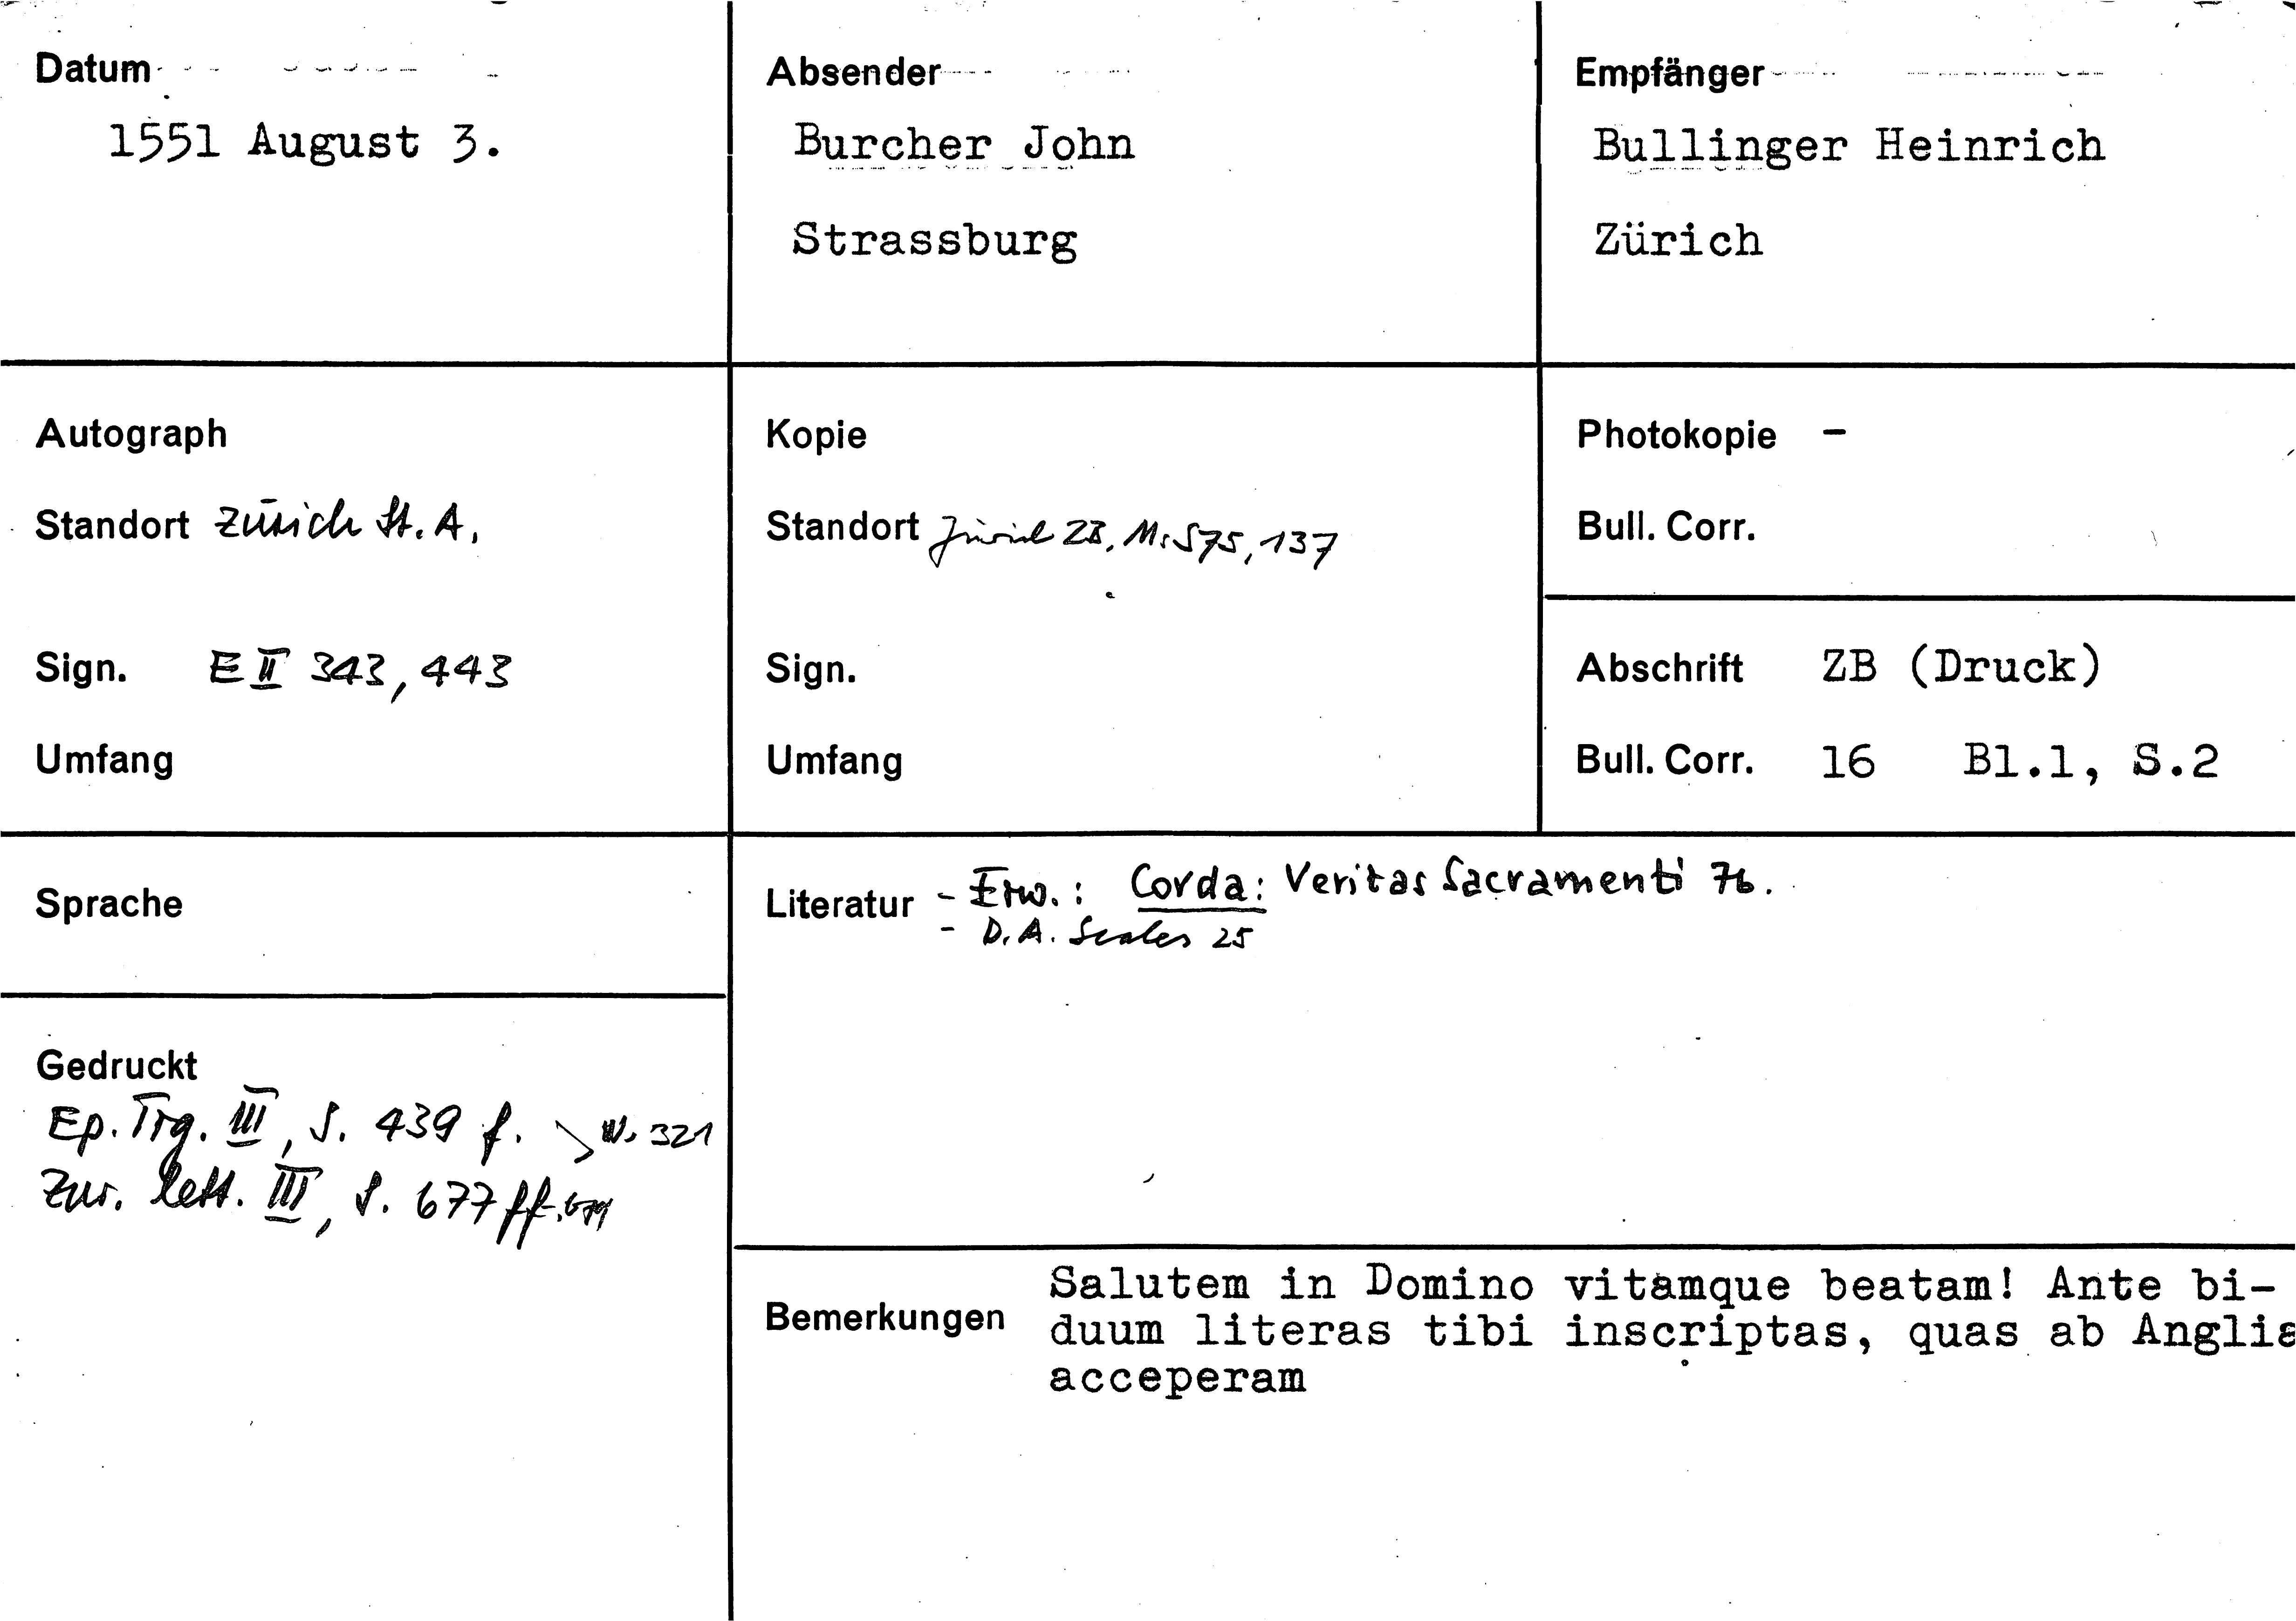 Datum
1551 August 3.
Absender
Burcher John
Strassburg
Empfänger
Bullinger Heinrich
Zürich
Autograph
Standort Zürich St. A.
Sign. E II 343, 443
Umfang
Kopie
Standort Zürich ZB, Ms S 75, 137
Sign.
Umfang
Photokopie -
Bull. Corr.
Abschrift ZB (Druck)
Bull. Corr. 16 Bl.1, S.2
Sprache
Literatur - Erw.: Corda: Veritas Sacramenti 76.
- D. A. Scales 25
Gedruckt
Ep. Trg. III, S. 439 f. 321
Zur. Lett. III, S. 677 ff.
Bemerkungen
Salutem in Domino vitamque beatam! Ante bi-
duum literas tibi inscriptas, quas ab Anglia
acceperam